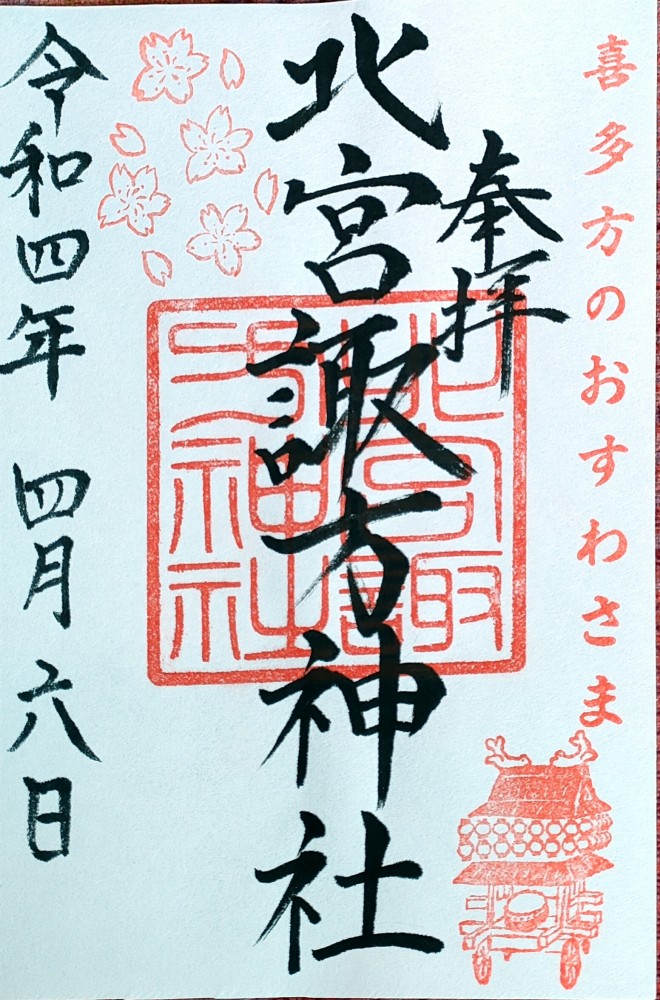 喜多方のおすわさま
奉拝
北宮諏方神社
北宮諏方神社
令和四年 四月六日